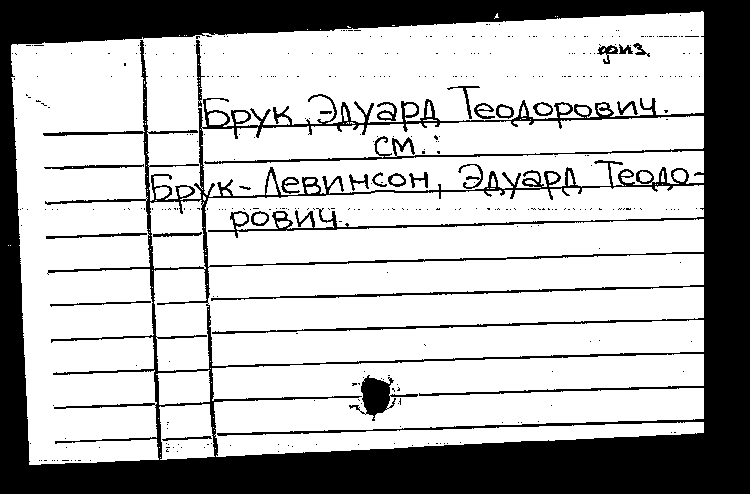 физ.
Брук, Эдуард Теодорович.
см.:
Брук-Левинсон, Эдуард Теодо-
рович.